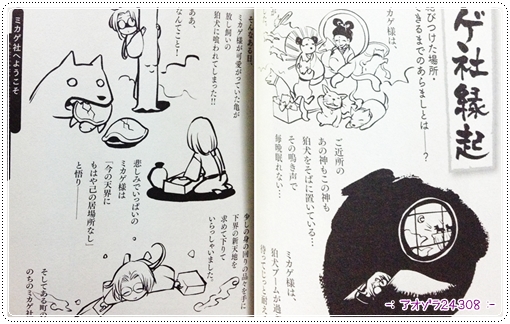 ゲ社縁起
びつけた場所・
きるまでのあらましとは――?
カゲ様は、
ご近所の
あの神もこの神も
狛犬をそばに置いている…
その鳴き声で
毎晩眠れない…
ミカゲ様は、
狛犬ブームが過
待ってじっと耐え
そんなある日、
ミカゲ様が可愛がっていた亀が
放し飼いの
狛犬に喰われてしまった!!
ああ、
なんてこと!
悲しみでいっぱいの
ミカゲ様は
「今の天界に
もはや己の居場所なし」
と悟り――
少しの身の回りの品々を手に
下界の新天地を
求めて下りて
いらっしゃいました。
そしてある町の
のちのミカゲ社
ミカゲ社へようこそ
-: アオゾラ24308 -